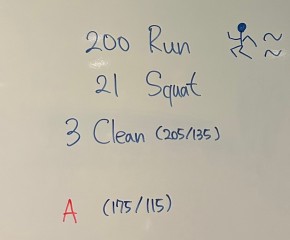 200 Run
21 Squat
3 Clean (205/135)
A (175/115)